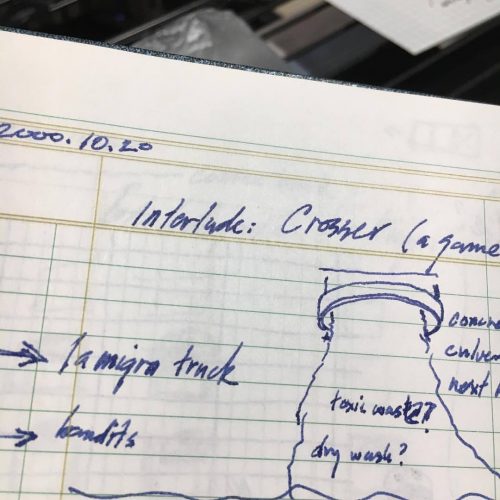 2000.10.20
Interlude: Crosser (a game
concre
culver
next
la migra truck
toxic waste??
bandits
dry wash?